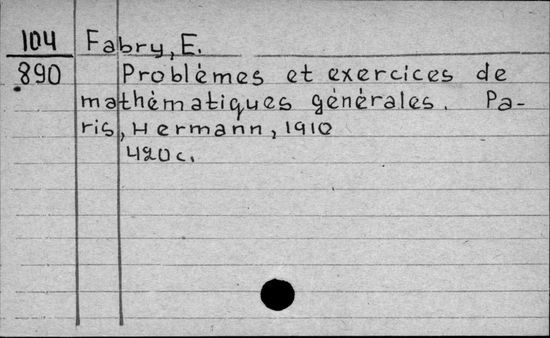 104 Fabry, E.
890 Problèmes et exercices de
mathématiques générales. Pa-
ris, Hermann, 1910
420 c.